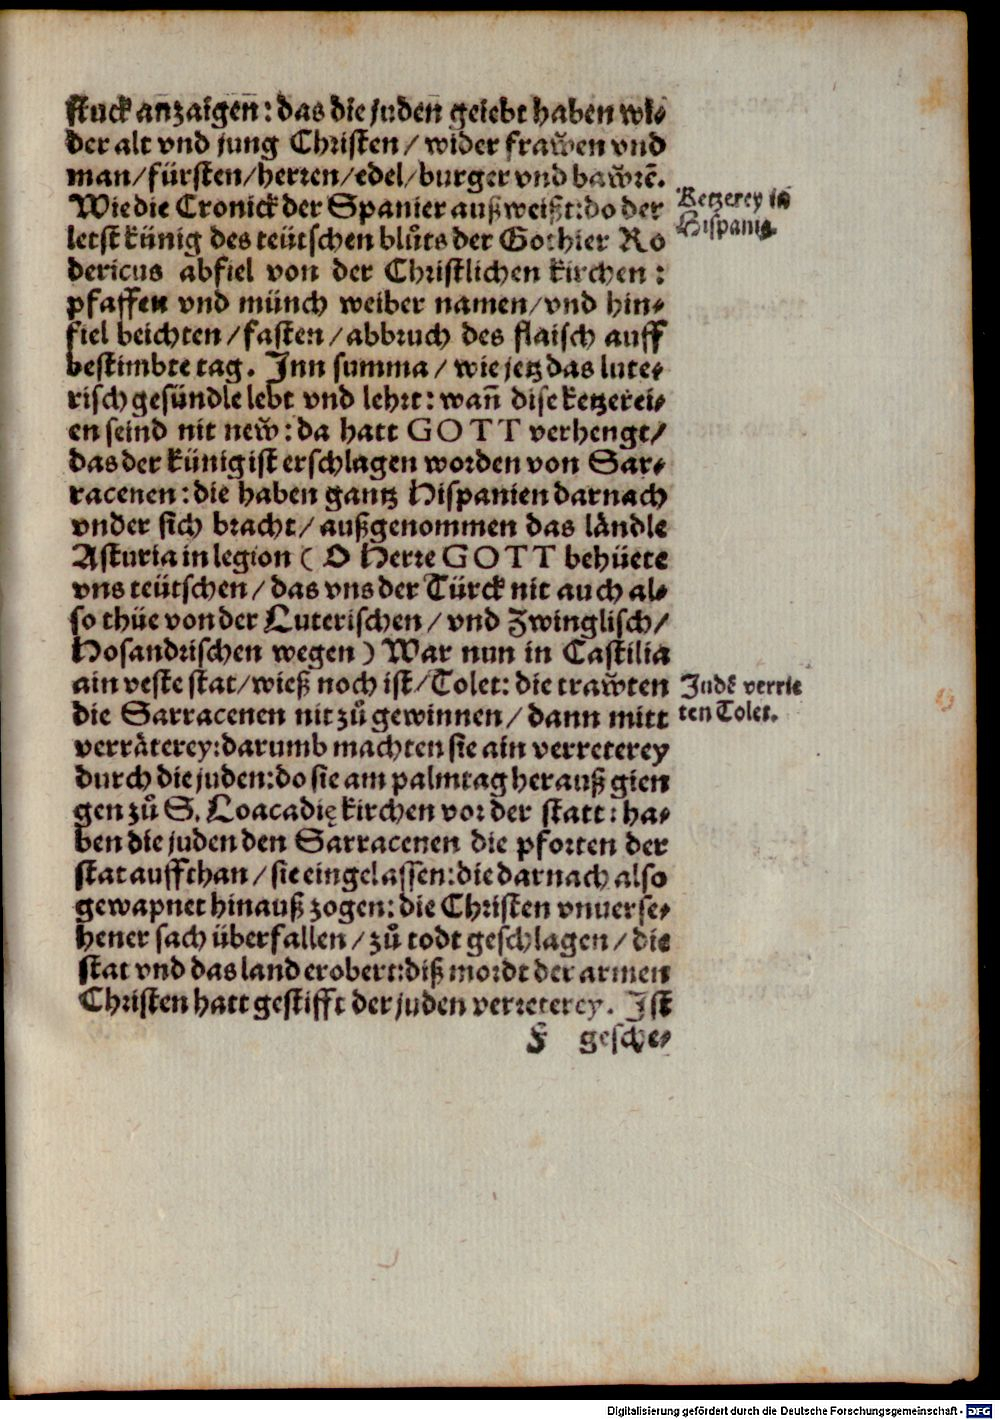 stuck anzaigen: das die juden geiebt haben wi⸗
der alt vnd jung Christen / wider frawͤen vnd
man/fürsten/herren/edel/burger vnd bawͤrẽ.
Wie die Cronick der Spanier außweißt: do der
letst künig des teütschen blůts der Gothier Ro
dericus abfiel von der Christlichen kirchen:
pfaffen vnd münch weiber namen/vnd hin⸗
fiel beichten/fasten/abbruch des flaisch auff
bestimbte tag. Inn summa / wie jetz das lute⸗
risch gesündle lebt vnd lehrt: wañ dise ketzerei⸗
en seind nit newͤ: da hatt GOTT verhengt/
das der künig ist erschlagen worden von Sar⸗
racenen: die haben gantz Hispanien darnach
vnder sich bracht/ außgenommen das ländle
Asturia in legion ( O Herre GOTT behüete
vns teütschen / das vns der Türck nit auch al⸗
so thüe von der Luterischen / vnd Zwinglisch/
Hosandrischen wegen ) War nun in Castilia
ain veste stat/wieß noch ist/Tolet: die trawͤten
die Sarracenen nit zů gewinnen / dann mitt
verräterey: darumb machten sie ain verreterey
durch die juden: do sie am palmtag herauß gien
gen zů S. Loacadię kirchen vor der statt: ha⸗
ben die juden den Sarracenen die pforten der
stat auffthan / sie eingelassen: die darnach also
gewapnet hinauß zogen: die Christen vnuerse⸗
hener sach überfallen / zů todt geschlagen / die
stat vnd das land erobert: diß mordt der armen
Christen hatt gestifft der juden verreterey. Ist
F gesche⸗
Ketzerey in
Hispanię.
Judẽ verrie
ten Tolet.
Digitalisierung gefördert durch die Deutsche Forschungsgemeinschaft - DFG